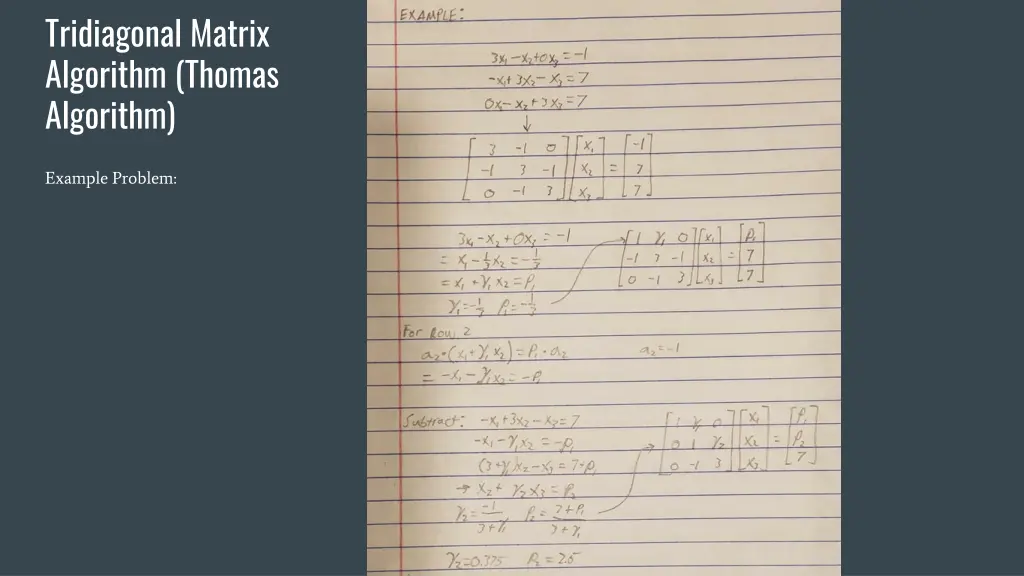 Tridiagonal Matrix
Algorithm (Thomas
Algorithm)
Example Problem:
EXAMPLE:
3x₁-x₂+0x₃=-1
-x₁+3x₂-x₃=7
0x₁-x₂+3x₃=7
↓
[3 -1 0] [x₁] [-1]
[-1 3 -1] [x₂] = [7]
[0 -1 3] [x₃] [7]
3x₁-x₂+0x₃=-1
= x₁-⅓x₂=-⅓
= x₁+γ₁x₂=ρ₁
γ₁=-⅓ ρ₁=-⅓
[1 γ₁ 0] [x₁] [ρ₁]
[-1 3 -1] [x₂] = [7]
[0 -1 3] [x₃] [7]
For Row 2
a₂·(x₁+γ₁x₂)=ρ₁·a₂ a₂=-1
= -x₁-γ₁x₂=-ρ₁
Subtract: -x₁+3x₂-x₃=7
-x₁-γ₁x₂=-ρ₁
(3+γ₁)x₂-x₃=7+ρ₁
→ x₂+γ₂x₃=ρ₂
γ₂=-1/(3+γ₁) ρ₂=(7+ρ₁)/(3+γ₁)
[1 γ₁ 0] [x₁] [ρ₁]
[0 1 γ₂] [x₂] = [ρ₂]
[0 -1 3] [x₃] [7]
γ₂=0.375 ρ₂=2.5